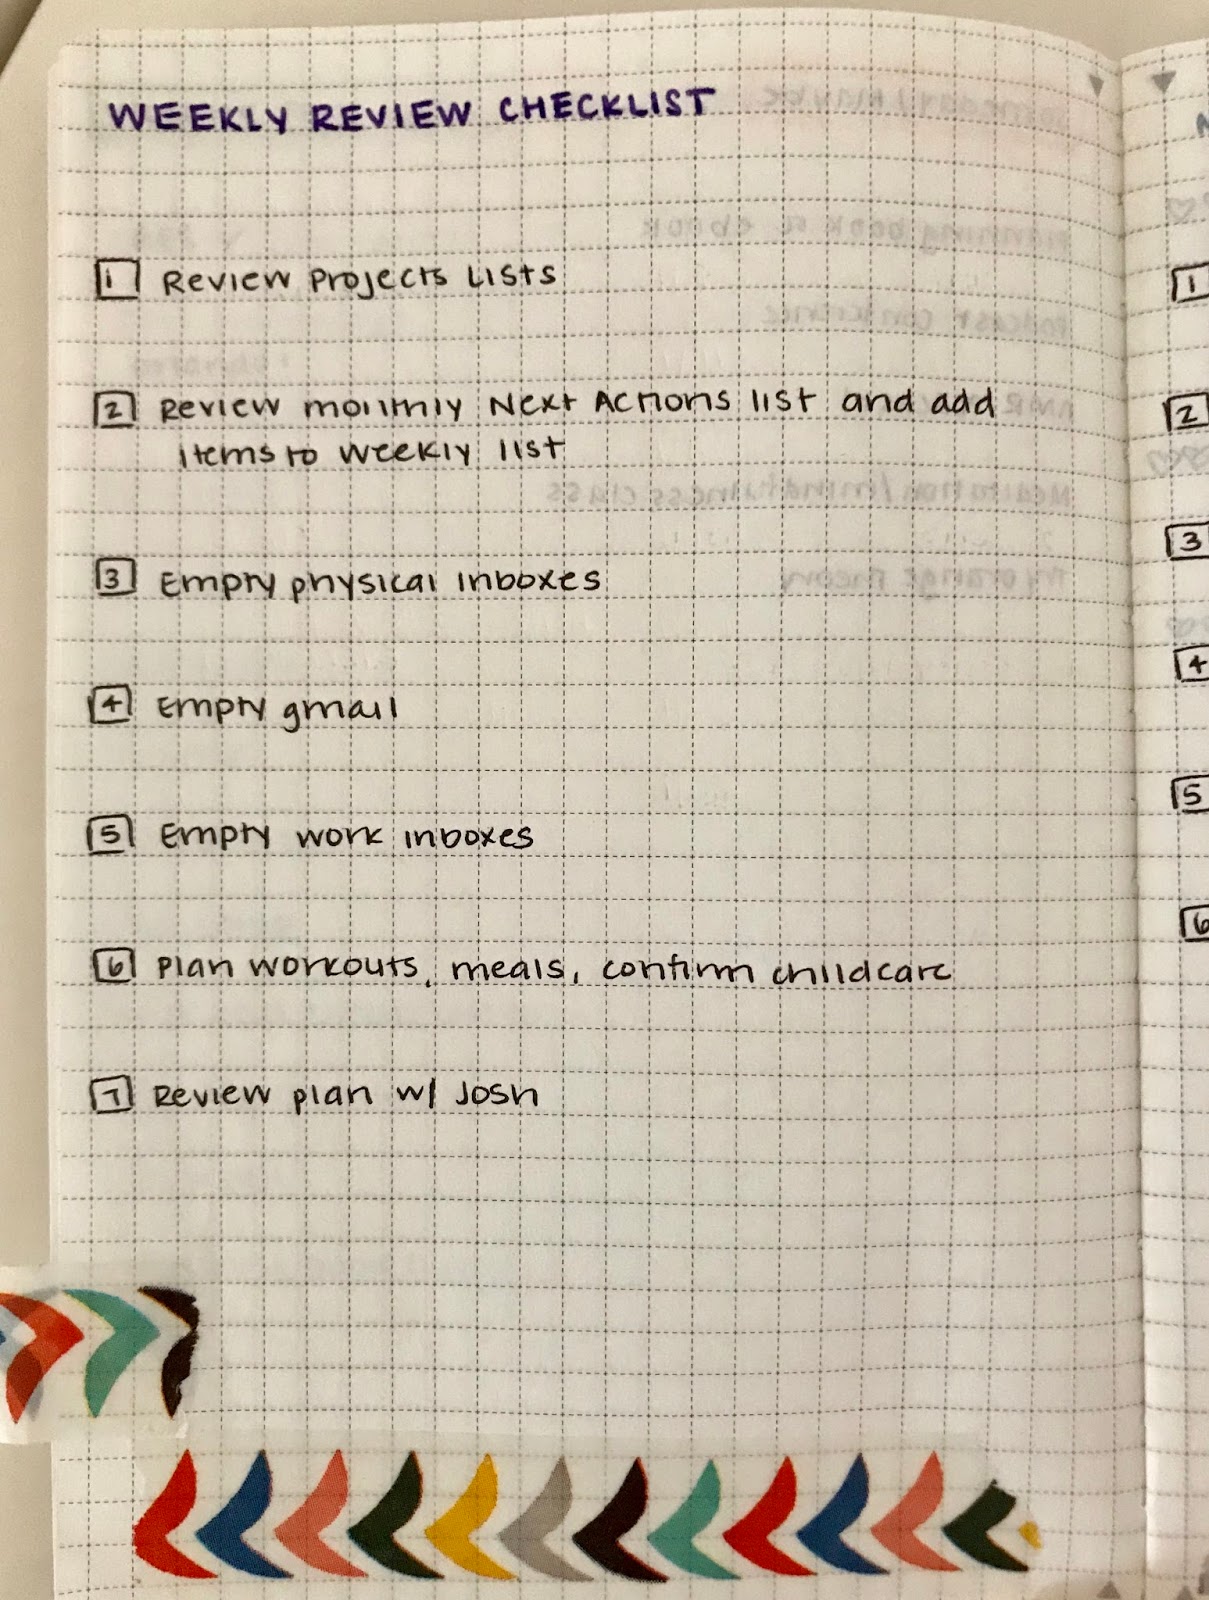 WEEKLY REVIEW CHECKLIST
1 Review Projects Lists
2 Review monthly Next Actions list and add
items to weekly list
3 Empty physical inboxes
4 Empty gmail
5 Empty work inboxes
6 Plan workouts, meals, confirm childcare
7 Review plan w/ Josh
1
2
3
4
5
6